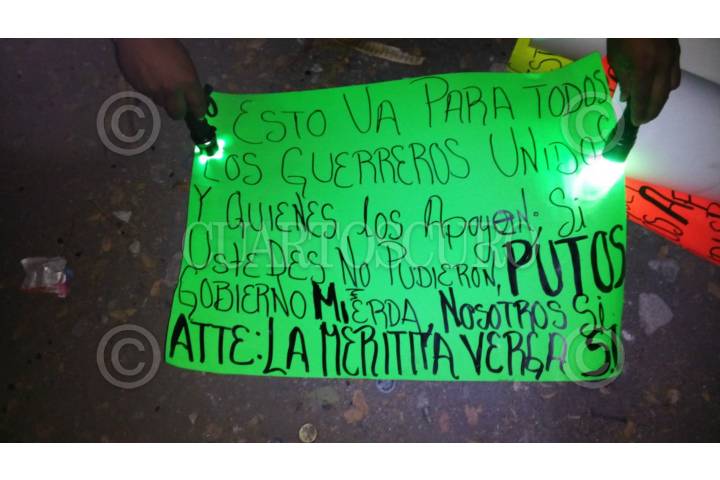 ESTO VA PARA TODOS
LOS GUERREROS UNIDOS
Y QUIENES LOS APOYEN; SI
USTEDES NO PUDIERON, PUTOS
GOBIERNO MIERDA, NOSOTROS SI
ATTE: LA MERITITA VERGA S.I
CUARTOSCURO